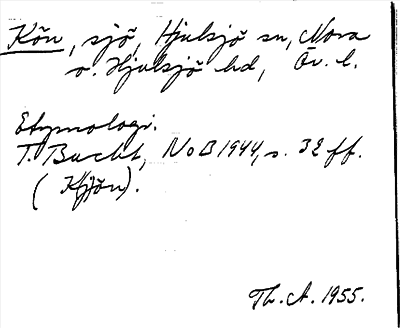 Kön, sjö, Hjulsjö sn, Nora
o. Hjulsjö hd, Ör. l.
Etymologi.
T. Bucht, NoB 1944, s. 32 ff.
(Kjön).
Th. A. 1955.